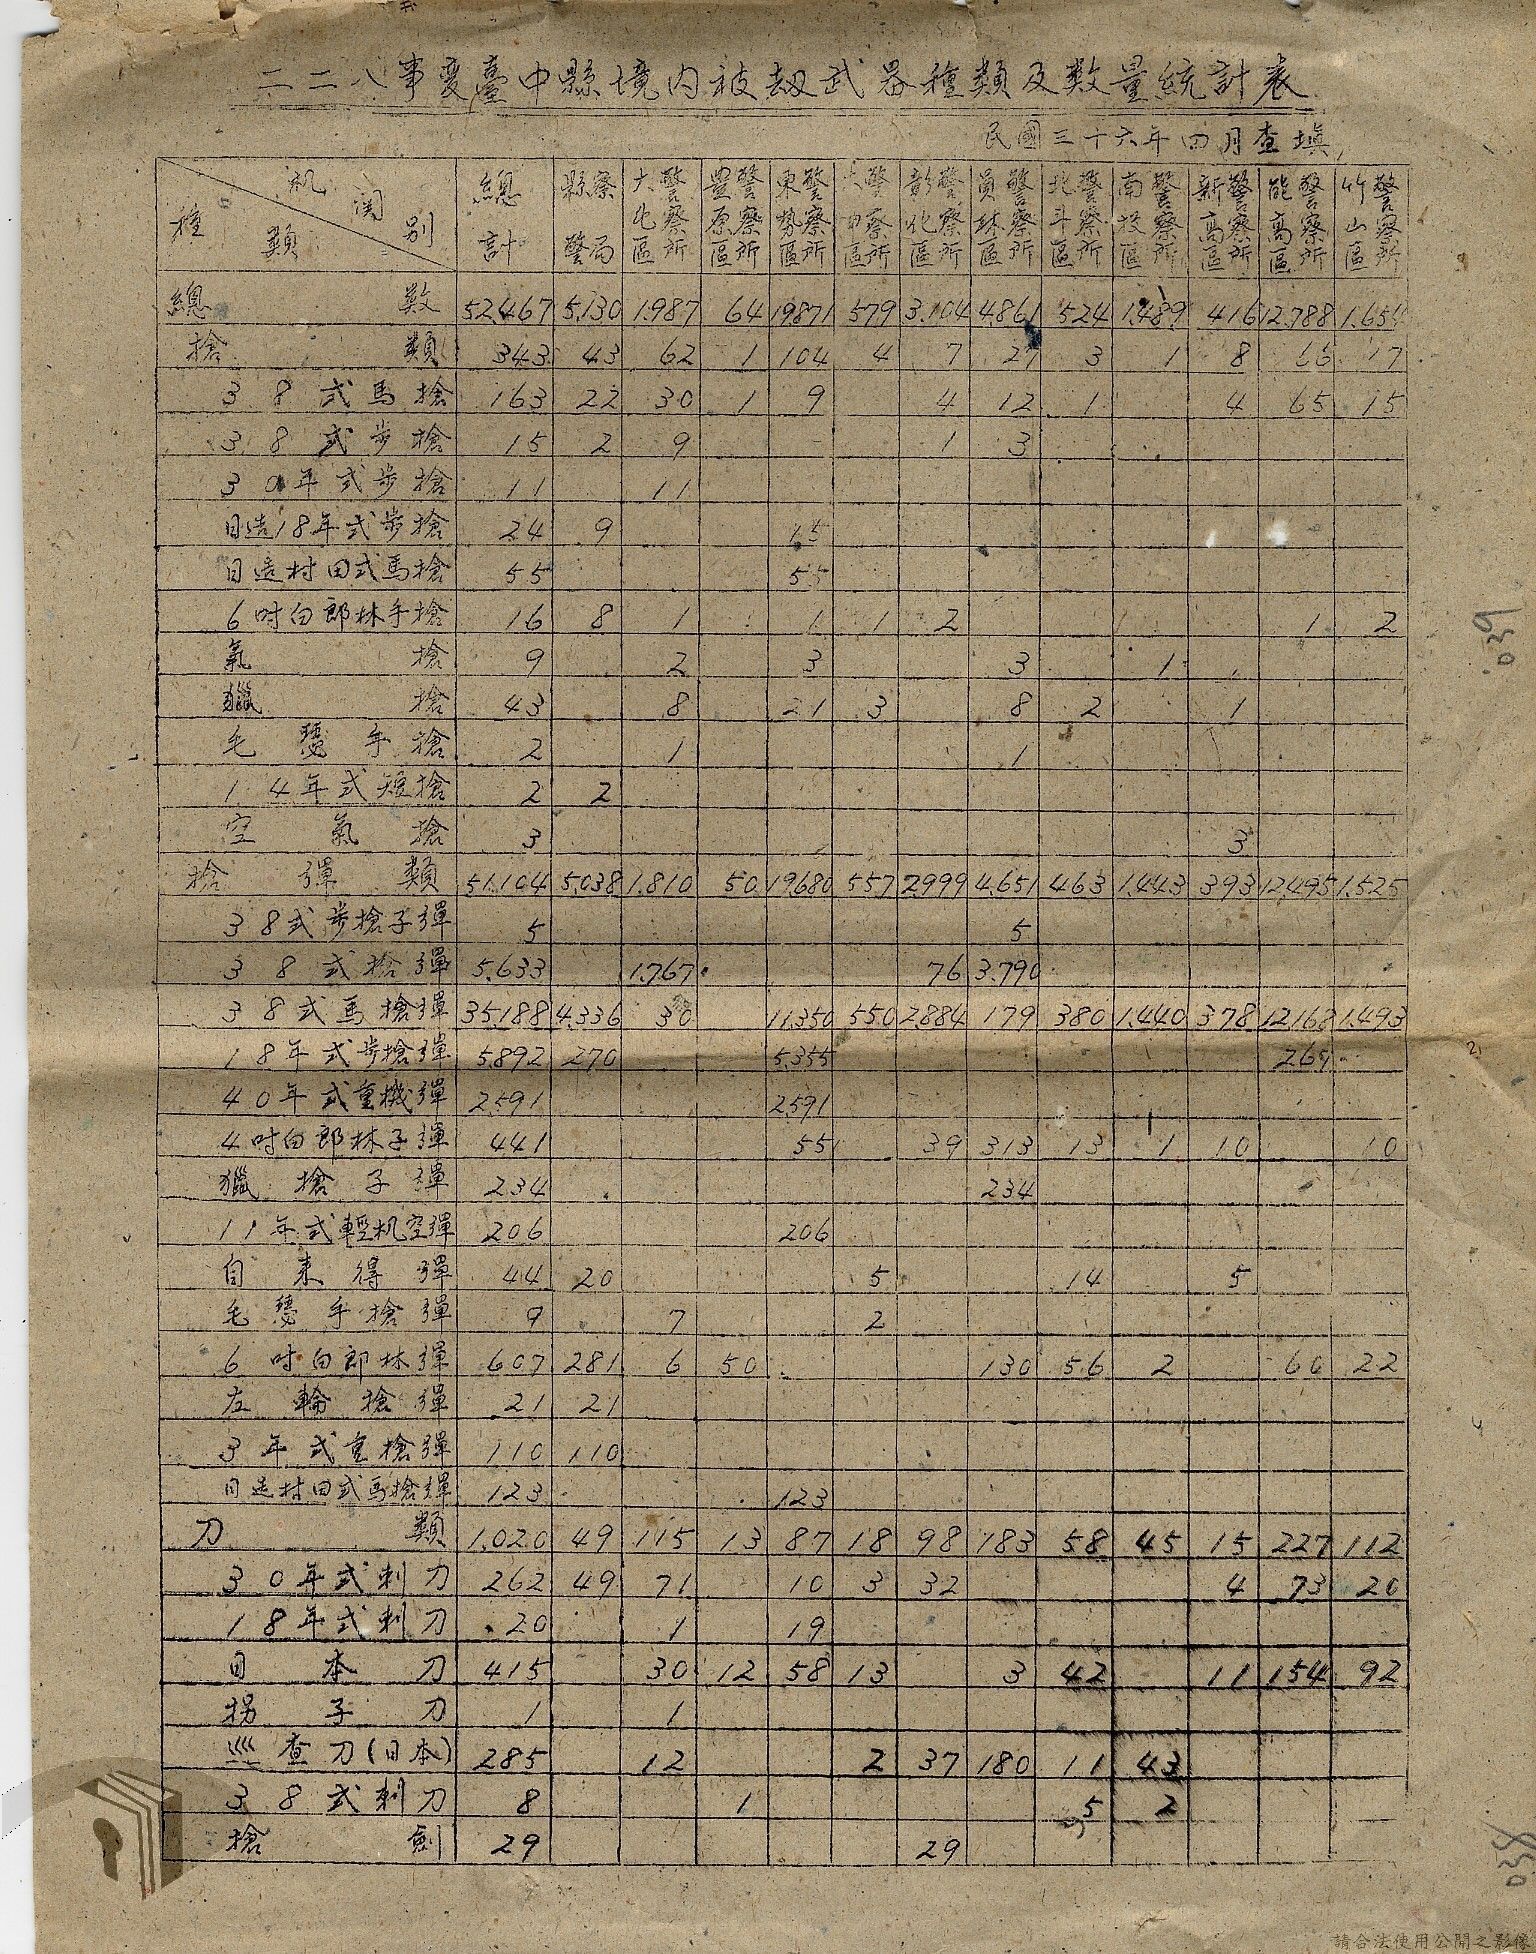 二二八事變臺中縣境内被刼武器種類及数量統計表
民國三十六年四月查填
机関别 種類 總計 縣警察局 大屯區警察所 豊原區警察所 東勢區警察所 大甲區警察所 彰化區警察所 員林區警察所 北斗區警察所 南投區警察所 新高區警察所 能高區警察所 竹山區警察所
總数 52.467 5.130 1.987 64 19871 579 3.104 4.861 524 1.489 416 12.788 1.654
搶類 343 43 62 1 104 4 7 27 3 1 8 66 17
38式馬搶 163 22 30 1 9 4 12 1 4 65 15
38式步搶 15 2 9 1 3
30年式步搶 11 11
日造18年式步搶 24 9 15
日造村田式馬搶 55 55
6吋白郎林手搶 16 8 1 1 1 2 1 2
氣搶 9 2 3 3 1
獵搶 43 8 21 3 8 2 1
毛瑟手搶 2 1 1
14年式短搶 2 2
空氣搶 3 3
搶彈類 51.104 5.038 1.810 50 19680 557 2999 4.651 463 1.443 393 12.495 1.525
38式步搶子彈 5 5
38式搶彈 5.633 1.767 76 3.790
38式馬搶彈 35.188 4.336 30 11.350 550 2884 179 380 1.440 378 12168 1.493
18年式步搶彈 5.892 270 5.355 267
40年式重機彈 2591 2591
4吋白郎林子彈 441 55 39 313 13 1 10 10
獵搶子彈 234 234
11年式輕机空彈 206 206
自来得彈 44 20 5 14 5
毛瑟手搶彈 9 7 2
6吋白郎林彈 607 281 6 50 130 56 2 60 22
左輪搶彈 21 21
3年式重搶彈 110 110
日造村田式馬搶彈 123 123
刀類 1.020 49 115 13 87 18 98 183 58 45 15 227 112
30年式刺刀 262 49 71 10 3 32 4 73 20
18年式刺刀 20 1 19
日本刀 415 30 12 58 13 3 42 11 154 92
拐子刀 1 1
巡查刀(日本) 285 12 2 37 180 11 43
38式刺刀 8 1 5 2
搶劍 29 29
請合法使用公開之影像